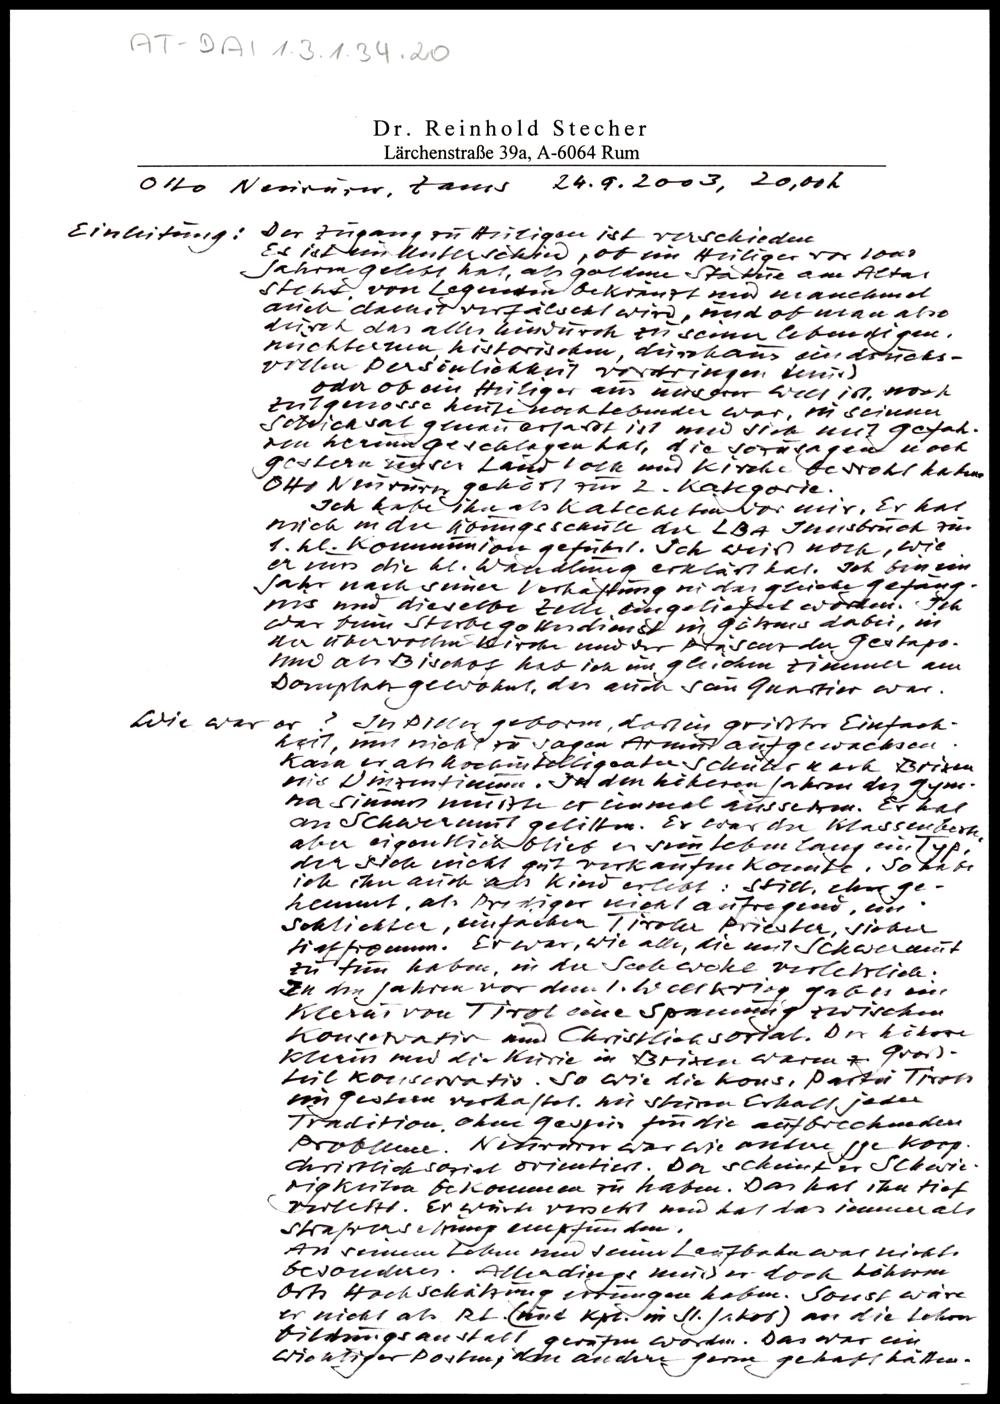 AT-DAI 1.3.1.34.20
Dr. Reinhold Stecher
Lärchenstraße 39a, A-6064 Rum
Otto Neururer, Zams 24.9.2003, 20,00h
Einleitung: Der Zugang zu Heiligen ist verschieden
Es ist ein Unterschied, ob ein Heiliger vor 1000
Jahren gelebt hat, als goldene Statue am Altar
steht, von Legenden bekränzt und manchmal
auch damit verfälscht wird, und ob man also
durch das alles hindurch zu seiner lebendigen,
nüchternen, historischen, durchaus eindrucks-
vollen Persönlichkeit vordringen muß
oder ob ein Heiliger aus unserer Welt ist, noch
Zeitgenosse heute noch Lebender war, in seinem
Schicksal genau erfaßt ist und sich mit Gefah-
ren herumgeschlagen hat, die sozusagen noch
gestern unser Land Volk und Kirche bedroht haben
Otto Neururer gehört zur 2. Kategorie.
Ich habe ihn als Katecheten vor mir. Er hat
mich in der Übungsschule der LBA Innsbruck zur
1. hl. Kommunion geführt. Ich weiß noch, wie
er uns die hl. Wandlung erklärt hat. Ich bin ein
Jahr nach seiner Verhaftung in das gleiche Gefäng-
nis und dieselbe Zelle eingeliefert worden. Ich
war beim Sterbegottesdienst in Götzens dabei, in
der übervollen Kirche und der Präsenz der Gestapo.
Und als Bischof hab ich im gleichen Zimmer am
Domplatz gewohnt, das auch sein Quartier war.
Wie war er? In Piller geboren, dort in größter Einfach-
heit, um nicht zu sagen Armut aufgewachsen.
Kam er als hochintelligenter Schüler nach Brixen
ins Vinzentinum. In den höheren Jahren des Gym-
nasiums mußte er einmal aussetzen. Er hat
an Schwermut gelitten. Er war der Klassenbeste,
aber eigentlich blieb er sein Leben lang ein Typ,
der sich nicht gut verkaufen konnte. So habe
ich ihn auch als Kind erlebt: Still, eher ge-
hemmt, als Prediger nicht aufregend, ein
schlichter, einfacher Tiroler Priester, sicher
tieffromm. Er war, wie alle, die mit Schwermut
zu tun haben, in der Seele wohl verletzlich.
In den Jahren vor dem 1. Weltkrieg gab es im
Klerus von Tirol eine Spannung zwischen
Konservativ und Christlichsozial. Der höhere
Klerus und die Kurie in Brixen waren Groß-
teil konservativ. So wie die kons. Partei Tirols
im gestern verhaftet, im sturen Erhalt jeder
Tradition, ohne Gespür für die aufbrechenden
Probleme. Neururer war wie andere jge Koop.
christlichsozial orientiert. Da scheint er Schwie-
rigkeiten bekommen zu haben. Das hat ihn tief
verletzt. Er wurde versetzt und hat das immer als
Strafversetzung empfunden.
An seinem Leben und seiner Laufbahn war nichts
besonderes. Allerdings muß er doch höheren
Orts Hochschätzung errungen haben. Sonst wäre
er nicht als RL (und Kpl. in St. Jakob) an die Lehrer
bildungsanstalt gerufen worden. Das war ein
wichtiger Posten, den andere gerne gehabt hätten.